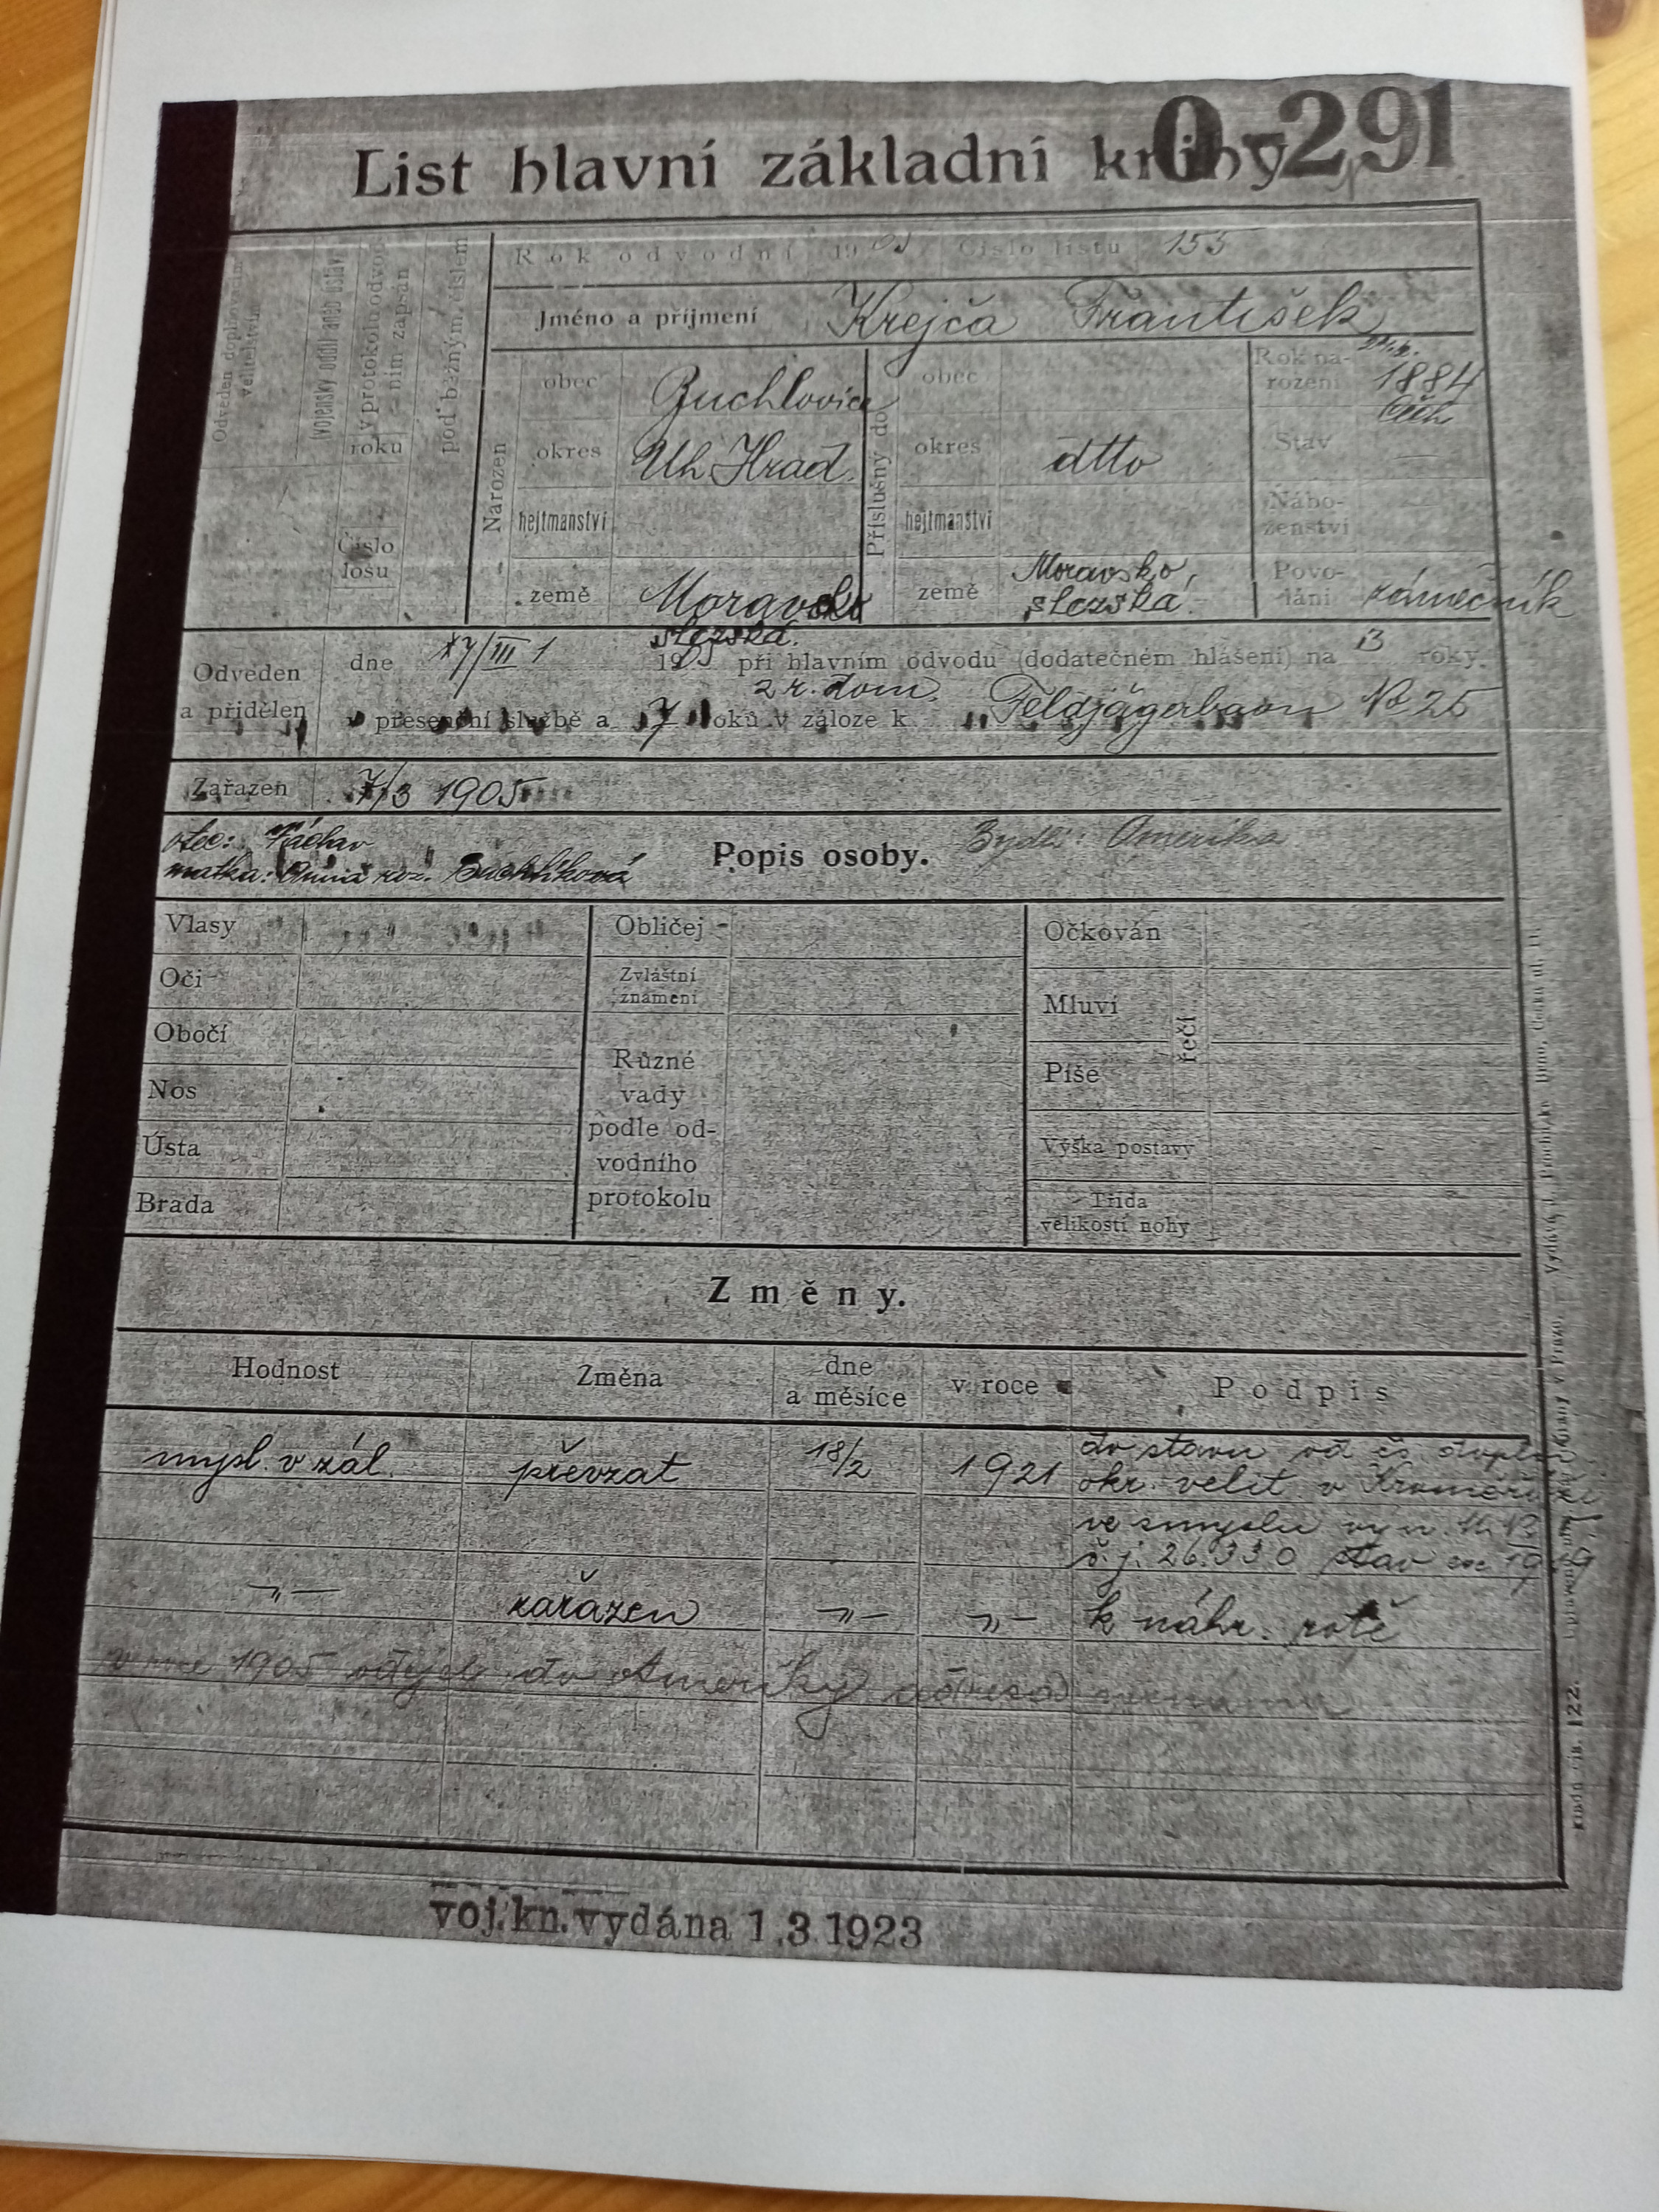 0-291
List hlavní základní knihy
Rok odvodní 190 Číslo listu 155
Jméno a příjmení Krejča František
Odveden doplňovacím velitelstvím
vojenský oddíl aneb ústav
v protokolu odvod- ním zapsán
roku
pod běžným číslem
Číslo losu
Narozen
obec Buchlovice
okres Uh. Hrad.
hejtmanství
země Moravsko slezská.
Příslušný do
obec
okres dtto
hejtmanství
země Moravsko, slezská.
Rok na- rození 1884
Čech
Stav
Nábo- ženství
Povo- lání zámečník
Odveden a přidělen
dne 17/III 1905 při hlavním odvodu (dodatečném hlášení) na 3 roky
2 r. dom.
v presenční službě a 7 roků v záloze k Feldjägerbaon No 25
Zařazen 7/3 1905
otec: Václav
matka: Anna roz. Buchlíková
Popis osoby.
Bydlí: Amerika
Vlasy Obličej Očkován
Oči Zvláštní znamení Mluví řečí
Obočí Různé vady podle od- vodního protokolu Píše
Nos
Ústa Výška postavy
Brada Třída velikosti nohy
Změny.
Hodnost Změna dne a měsíce v roce Podpis
mysl. v zál. převzat 18/2 1921 do stavu od čs. dopl.
okr. velit. v Kroměříži
ve smyslu výn.
č.j. 26.330
-„- zařazen -„- -„- k náhr. rotě
v roce 1905 odjel do Ameriky adresa
voj.kn.vydána 1.3.1923